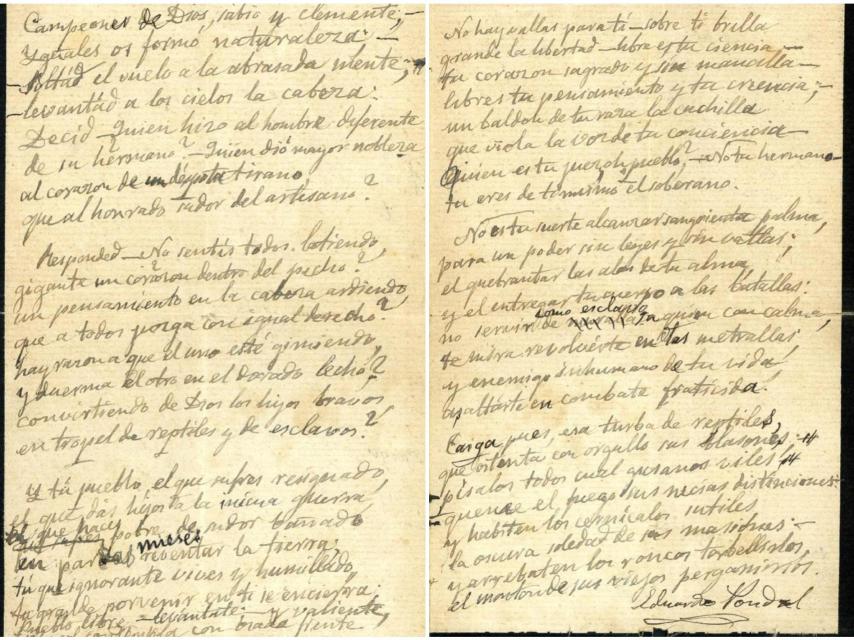 Campeones de Dios, sabio y clemente,
Yguales os formó naturaleza:
Soltad el vuelo a la abrasada mente,
levantád a los cielos la cabeza:
Decid — Quien hizo al hombre diferente
de su hermano? — Quien dió mayor nobleza
al corazon de un déspota tirano
que al honrado sudor del artesano?
Responded — No sentís todos latiendo,
gigante un corazon dentro del pecho?
un pensamiento en la cabeza ardiendo,
que a todos ponga con igual derecho?
hay razon a que el uno esté gimiendo,
y duerma el otro en el dorado lecho?
convirtiendo de Dios los hijos bravos
en tropel de reptiles y de esclavos?
Y tú pueblo, el que sufres resignado,
el que dás hijos a la inicua guerra,
que haces pobre de sudor bañado
en pardas mieses reventar la tierra;
tú que ignorante vives y humillado,
tu grande porvenir en ti se encierra:
Pueblo libre — levántate — y valiente,
con osada frente
No hay vallas para tí — sobre tí brilla
grande la libertad — libre es tu ciencia —
tu corazon sagrado y sin mancilla —
libres tu pensamiento y tu creencia; —
un baldon de tu raza la cuchilla
que viola la voz de tu conciencia —
Quien es tu juez oh pueblo? — No tu hermano —
tu eres de tí mismo el soberano.
No es tu suerte alcanzar sangrienta palma,
para un poder sin leyes y sin vallas;
el quebrantar las alas de tu alma,
y el entregar tu cuerpo a las batallas:
como esclavo
no servir de a quien con calma,
te mira revolverte en las metrallas,
y enemigo inhumano de tu vida
asaltarte en combate fraticida.
Caiga pues, esa turba de reptiles,
que ostenta con orgullo sus blasones:
písalos todos cual gusanos viles,
queme el fuego sus necias distinciones:
y habiten los cernícalos sutiles
la oscura soledad de sus mansiones —
y arrebaten los roncos torbellinos,
el monton de sus viejos pergaminos.
Eduardo Pondal